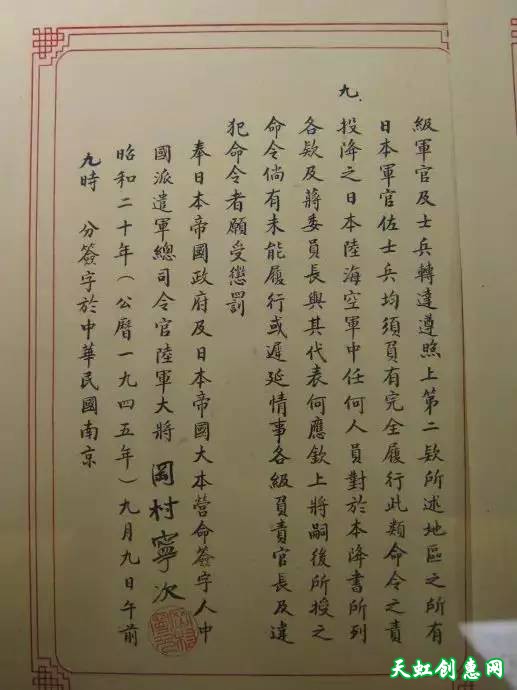 級軍官及士兵轉達遵照上第二欵所述地區之所有
日本軍官佐士兵均須負有完全履行此類命令之責
九.
投降之日本陸海空軍中任何人員對於本降書所列
各欵及蔣委員長與其代表何應欽上將嗣後所授之
命令倘有未能履行或遲延情事各級負責官長及違
犯命令者願受懲罰
奉日本帝國政府及日本帝國大本營命簽字人中
國派遣軍總司令官陸軍大將 岡村寧次
昭和二十年(公曆一九四五年)九月九日午前
九時 分簽字於中華民國南京
天虹创意网